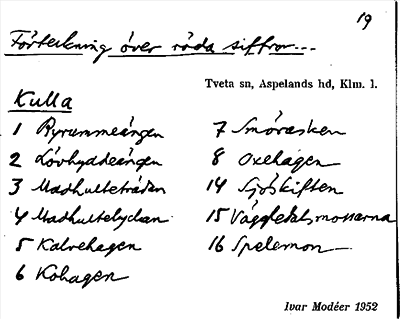 19
Förteckning över röda siffror...
Tveta sn, Aspelands hd, Klm. l.
Kulla
1 Pyrummeängen
2 Lövhyddeängen
3 Madhulteträden
4 Madhultelyckan
5 Kalvehagen
6 Kohagen
7 Smörasken
8 Oxehagen
14 Sjöskiften
15 Väggledalsmossarna
16 Spelemon
Ivar Modéer 1952